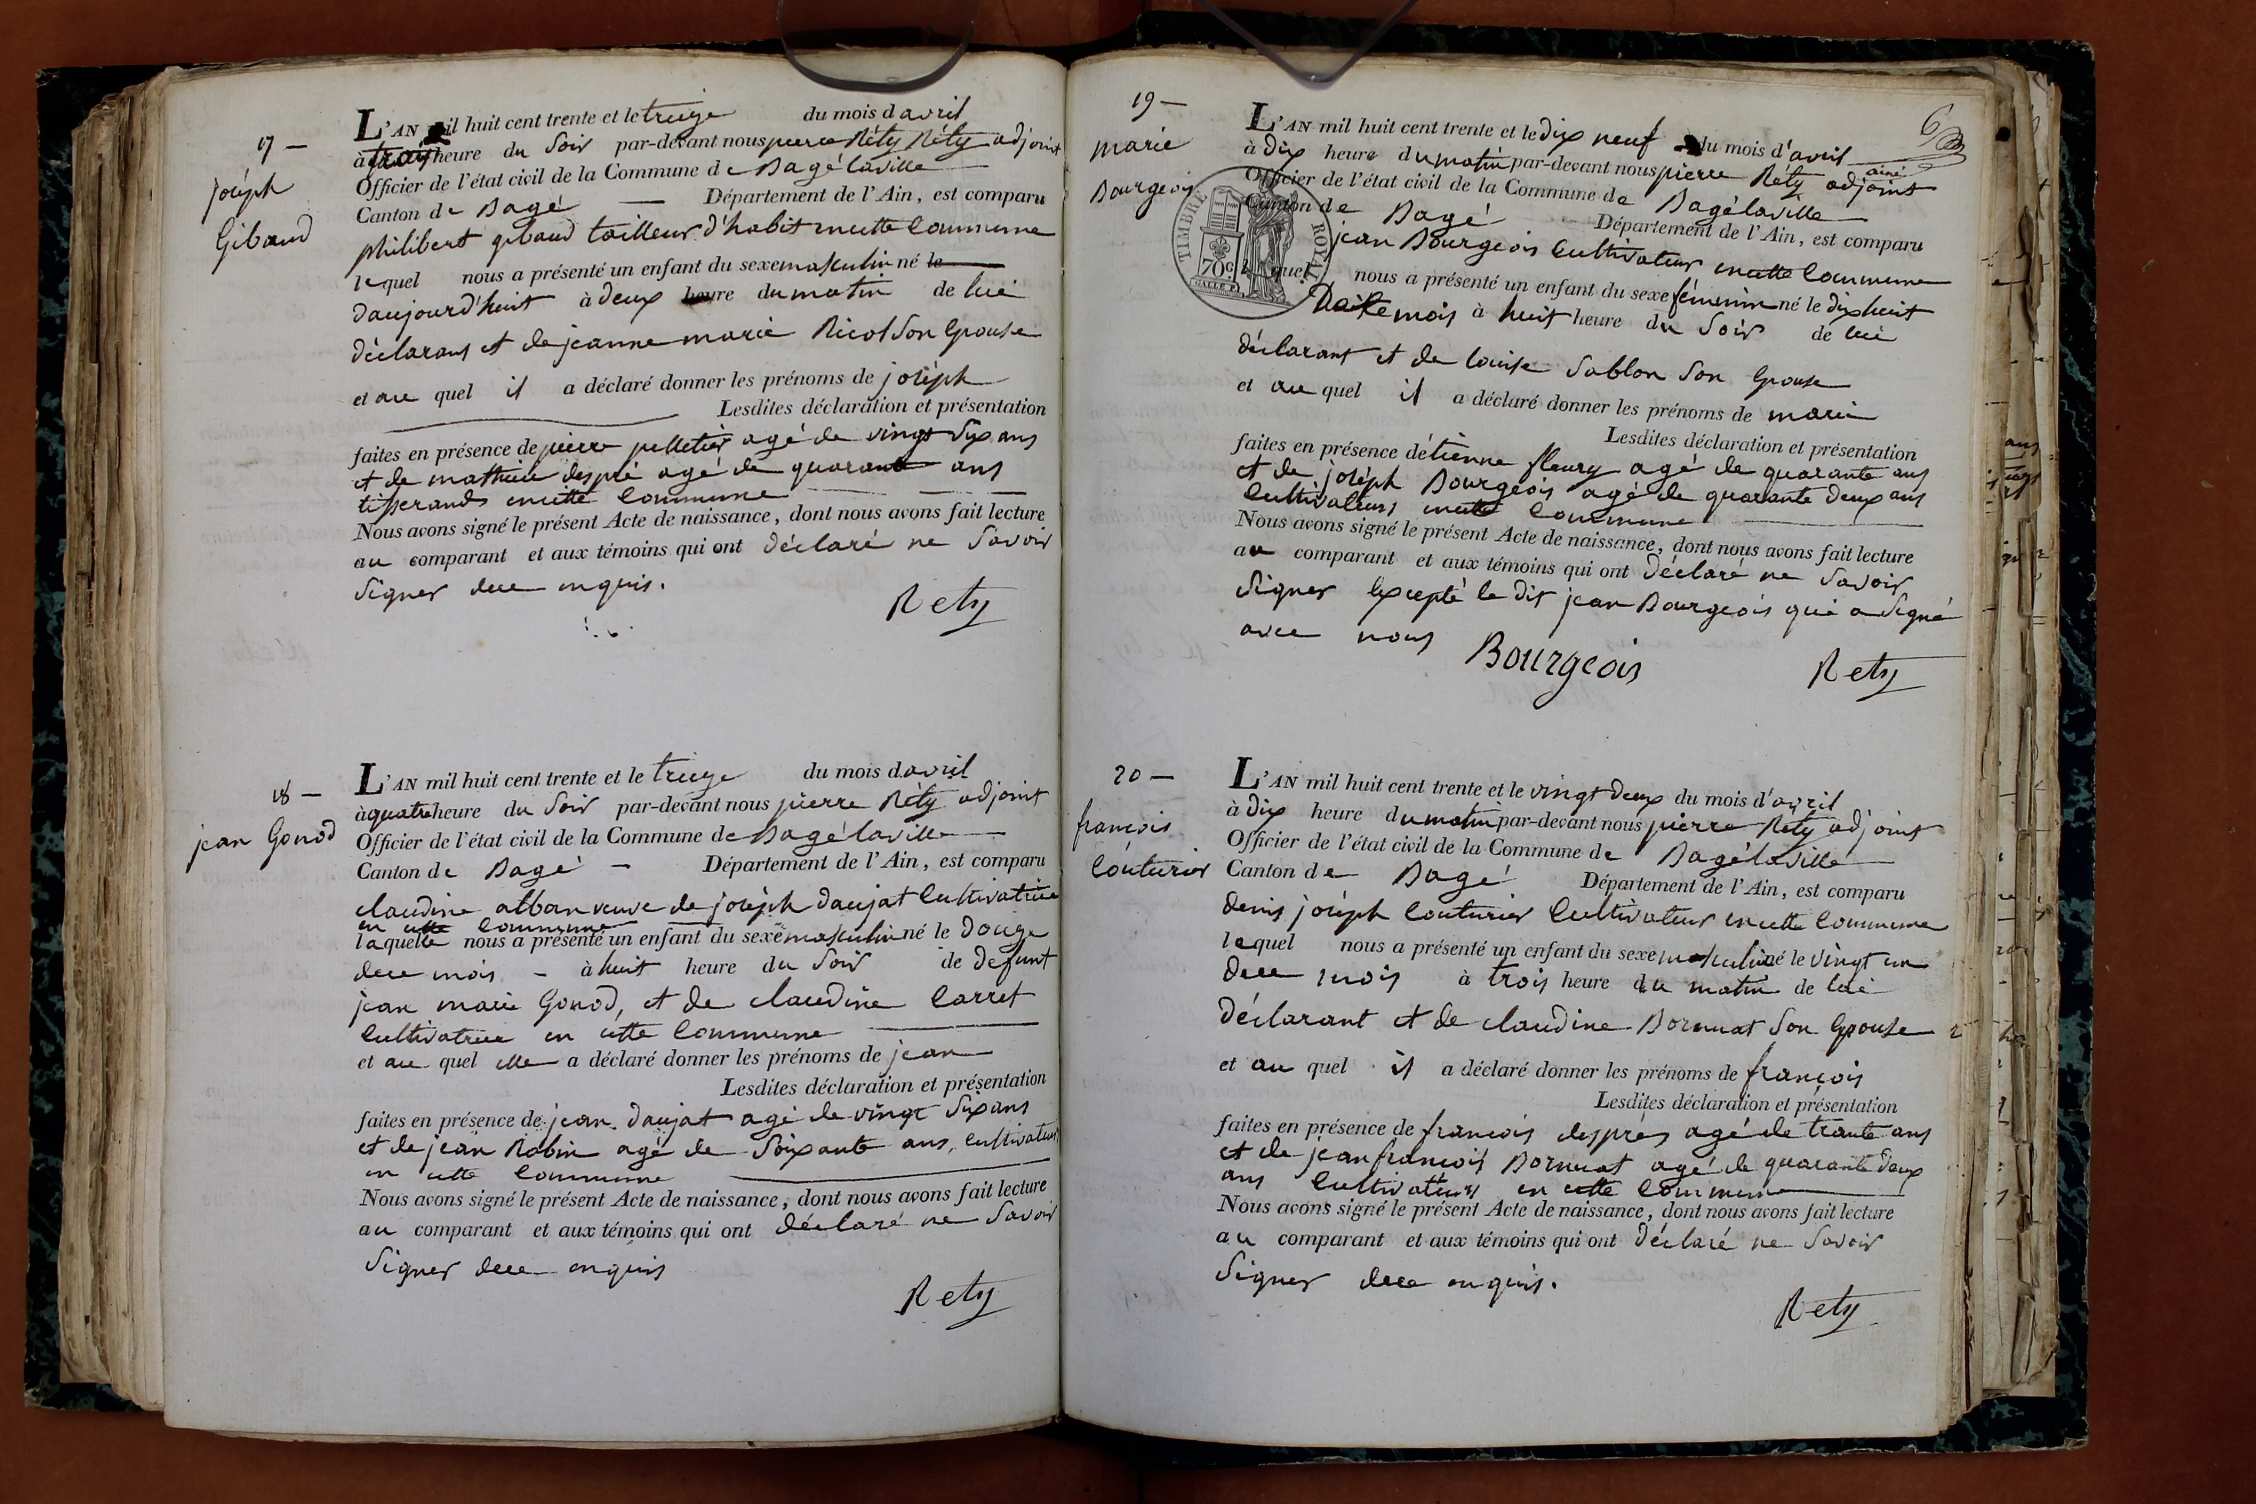 17 —
joséph
Gibaud
L'AN mil huit cent trente et le treize du mois d avril
à trois heure du Soir par-devant nous pierre Réty Réty adjoint
Officier de l'état civil de la Commune de Bagé laville
Canton de Bagé — Département de l'Ain, est comparu
philibert gibaud tailleur d'habit encette Commune
lequel nous a présenté un enfant du sexe masculin né le
daujourd'huit à deux heure du matin de lui
déclarant et de jeanne marie Ricol Son Epouse
et au quel il a déclaré donner les prénoms de joséph
Lesdites déclaration et présentation
faites en présence de pierre pelletier agé de vingt Six ans
et de mathieu despré agé de quarante ans
tisserands encette Commune
Nous avons signé le présent Acte de naissance, dont nous avons fait lecture
au comparant et aux témoins qui ont déclaré ne Savoir
Signer dece enquis.
Rety
18 —
jean Gonod
L'AN mil huit cent trente et le treize du mois d avril
à quatre heure du Soir par-devant nous pierre Réty adjoint
Officier de l'état civil de la Commune de Bagé laville
Canton de Bagé — Département de l'Ain, est comparu
claudine alban veuve de joséph daujat Cultivatrice
en cette Commune
laquelle nous a présenté un enfant du sexe masculin né le douze
dece mois - à huit heure du Soir de defunt
jean marie Gonod, et de claudine Carret
Cultivatrice en cette Commune
et au quel elle a déclaré donner les prénoms de jean
Lesdites déclaration et présentation
faites en présence de jean daujat agé de vingt Six ans
et de jean Robin agé de Soixante ans, Cultivateurs
en cette Commune
Nous avons signé le présent Acte de naissance, dont nous avons fait lecture
au comparant et aux témoins qui ont déclaré ne Savoir
Signer dece enquis
Rety
6
19 —
marie
Bourgeois
TIMBRE ROYAL
70c
L'AN mil huit cent trente et le dix neuf du mois d'avril
à dix heure du matin par-devant nous pierre Réty ainé adjoint
Officier de l'état civil de la Commune de Bagé laville
Canton de Bagé Département de l'Ain, est comparu
jean Bourgeois Cultivateur encette Commune
lequel nous a présenté un enfant du sexe féminin né le dix huit
mois à huit heure du Soir de lui
déclarant et de louise Sablon Son Epouse
et au quel il a déclaré donner les prénoms de marie
Lesdites déclaration et présentation
faites en présence détienne fleury agé de quarante ans
et de joséph Bourgeois agé de quarante deux ans
Cultivateurs encette Commune
Nous avons signé le présent Acte de naissance, dont nous avons fait lecture
au comparant et aux témoins qui ont déclaré ne Savoir
Signer Excepté le dit jean Bourgeois qui a Signé
avec nous
Bourgeois Rety
20 —
francois
Couturier
L'AN mil huit cent trente et le vingt deux du mois d'avril
à dix heure du matin par-devant nous pierre Rety adjoint
Officier de l'état civil de la Commune de Bagé laville
Canton de Bagé Département de l'Ain, est comparu
denis joséph Couturier Cultivateur encette Commune
lequel nous a présenté un enfant du sexe masculin né le vingt un
dece mois à trois heure du matin de lui
déclarant et de claudine Bornuat Son Epouse
et au quel il a déclaré donner les prénoms de françois
Lesdites déclaration et présentation
faites en présence de francois després agé de trante ans
et de jean francois Bornuat agé de quarante deux
ans Cultivateurs en cette Commune
Nous avons signé le présent Acte de naissance, dont nous avons fait lecture
au comparant et aux témoins qui ont déclaré ne Savoir
Signer dece enquis.
Rety